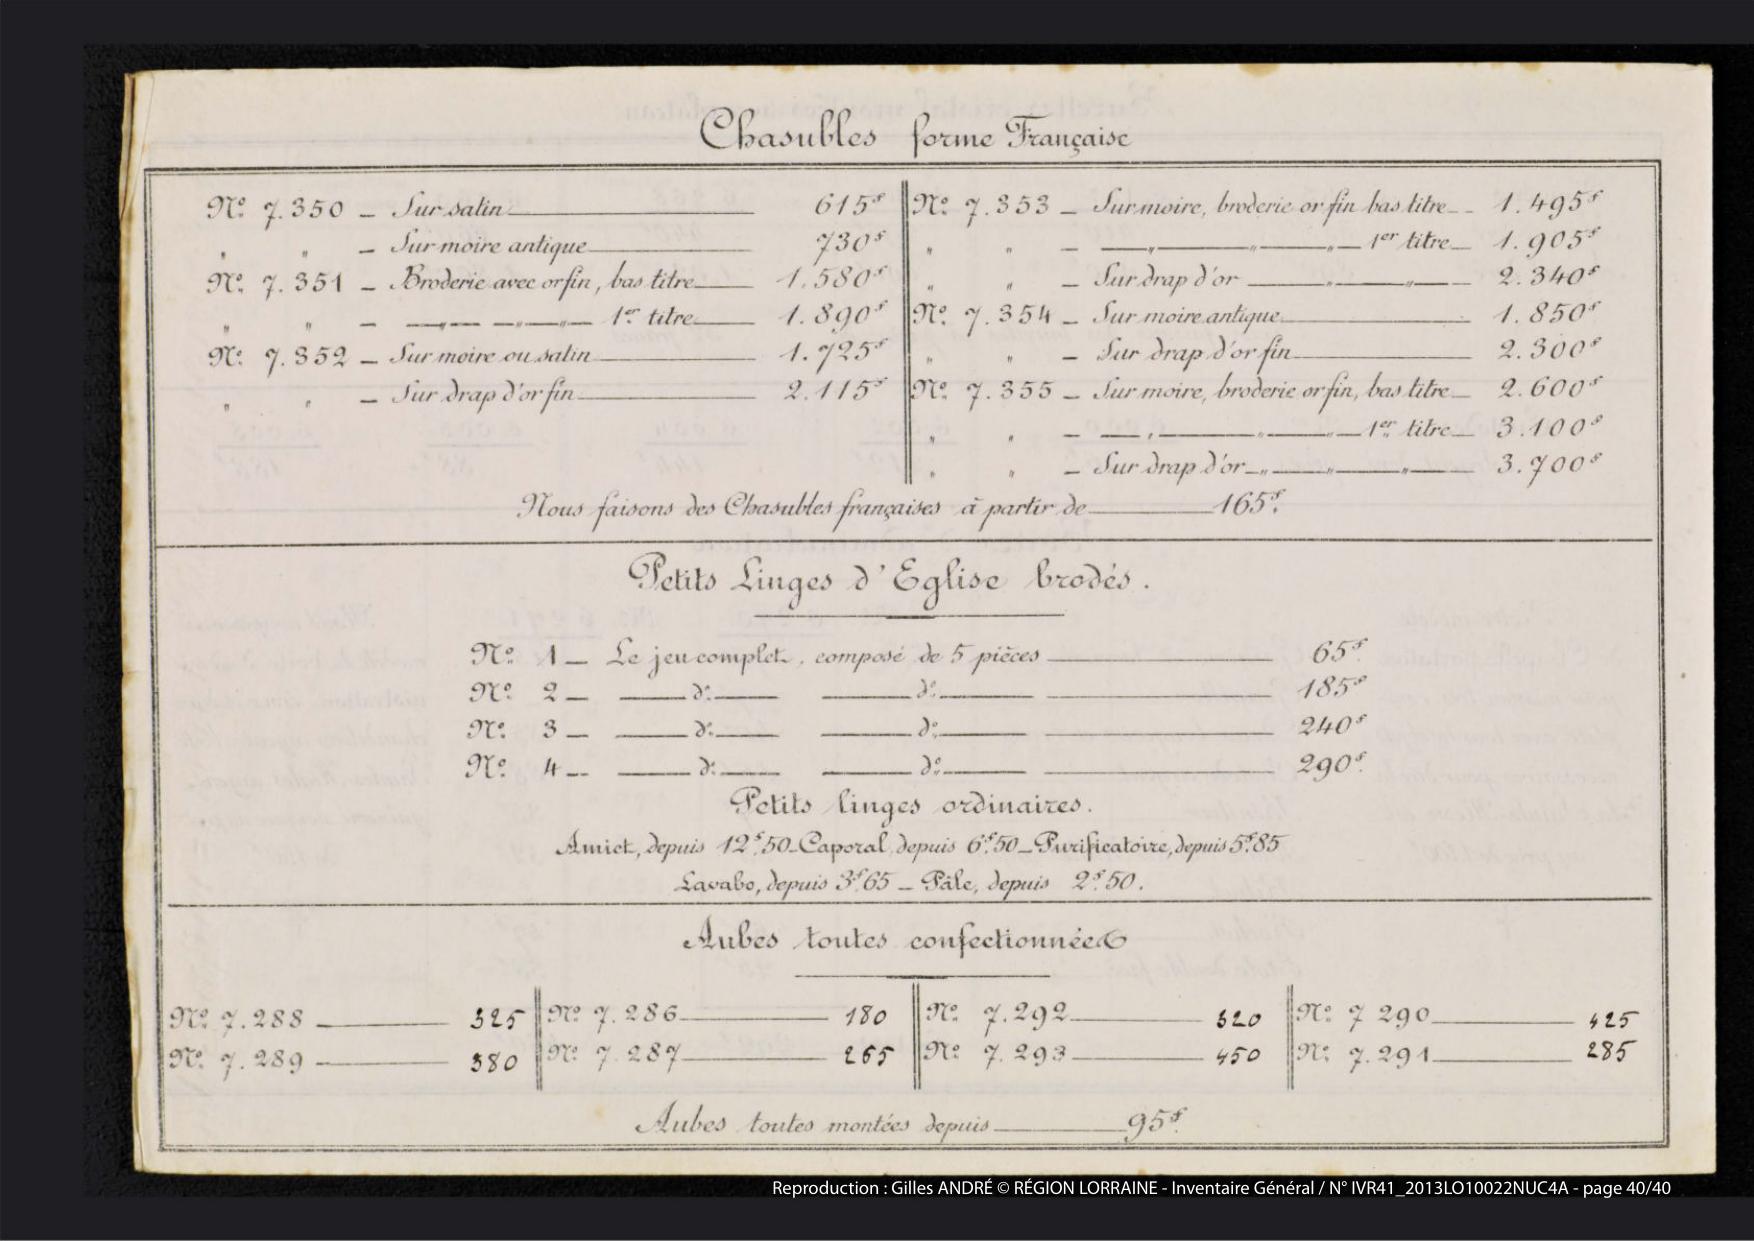 Chasubles forme Française
Nº 7.350 — Sur satin — 615f
„ „ — Sur moire antique — 730f
Nº 7.351 — Broderie avec or fin, bas titre — 1.580f
„ „ — „ — „ — „ 1er titre — 1.890f
Nº 7.352 — Sur moire ou satin — 1.725f
„ „ — Sur drap d'or fin — 2.115f
Nº 7.353 — Sur moire, broderie or fin bas titre — 1.495f
„ „ — „ — „ — „ — 1er titre — 1.905f
„ „ — Sur drap d'or — „ — „ — 2.340f
Nº 7.354 — Sur moire antique — 1.850f
„ „ — Sur drap d'or fin — 2.300f
Nº 7.355 — Sur moire, broderie or fin, bas titre — 2.600f
„ „ — „ — „ — „ — 1er titre — 3.100f
„ „ — Sur drap d'or — „ — „ — „ — 3.700f
Nous faisons des Chasubles françaises à partir de — 165f.
Petits Linges d'Eglise brodés.
Nº 1 — Le jeu complet, composé de 5 pièces — 65f.
Nº 2 — dº — dº — 185f
Nº 3 — dº — dº — 240f
Nº 4 — dº — dº — 290f.
Petits linges ordinaires.
Amict, depuis 12f.50 — Caporal, depuis 6f.50 — Purificatoire, depuis 5f.85
Lavabo, depuis 3f.65 — Pâle, depuis 2f.50.
Aubes toutes confectionnées
Nº 7.288 — 325
Nº 7.289 — 380
Nº 7.286 — 180
Nº 7.287 — 265
Nº 7.292 — 320
Nº 7.293 — 450
Nº 7 290 — 425
Nº 7.291 — 285
Aubes toutes montées depuis — 95f.
Reproduction : Gilles ANDRÉ © RÉGION LORRAINE - Inventaire Général / N° IVR41_2013LO10022NUC4A - page 40/40